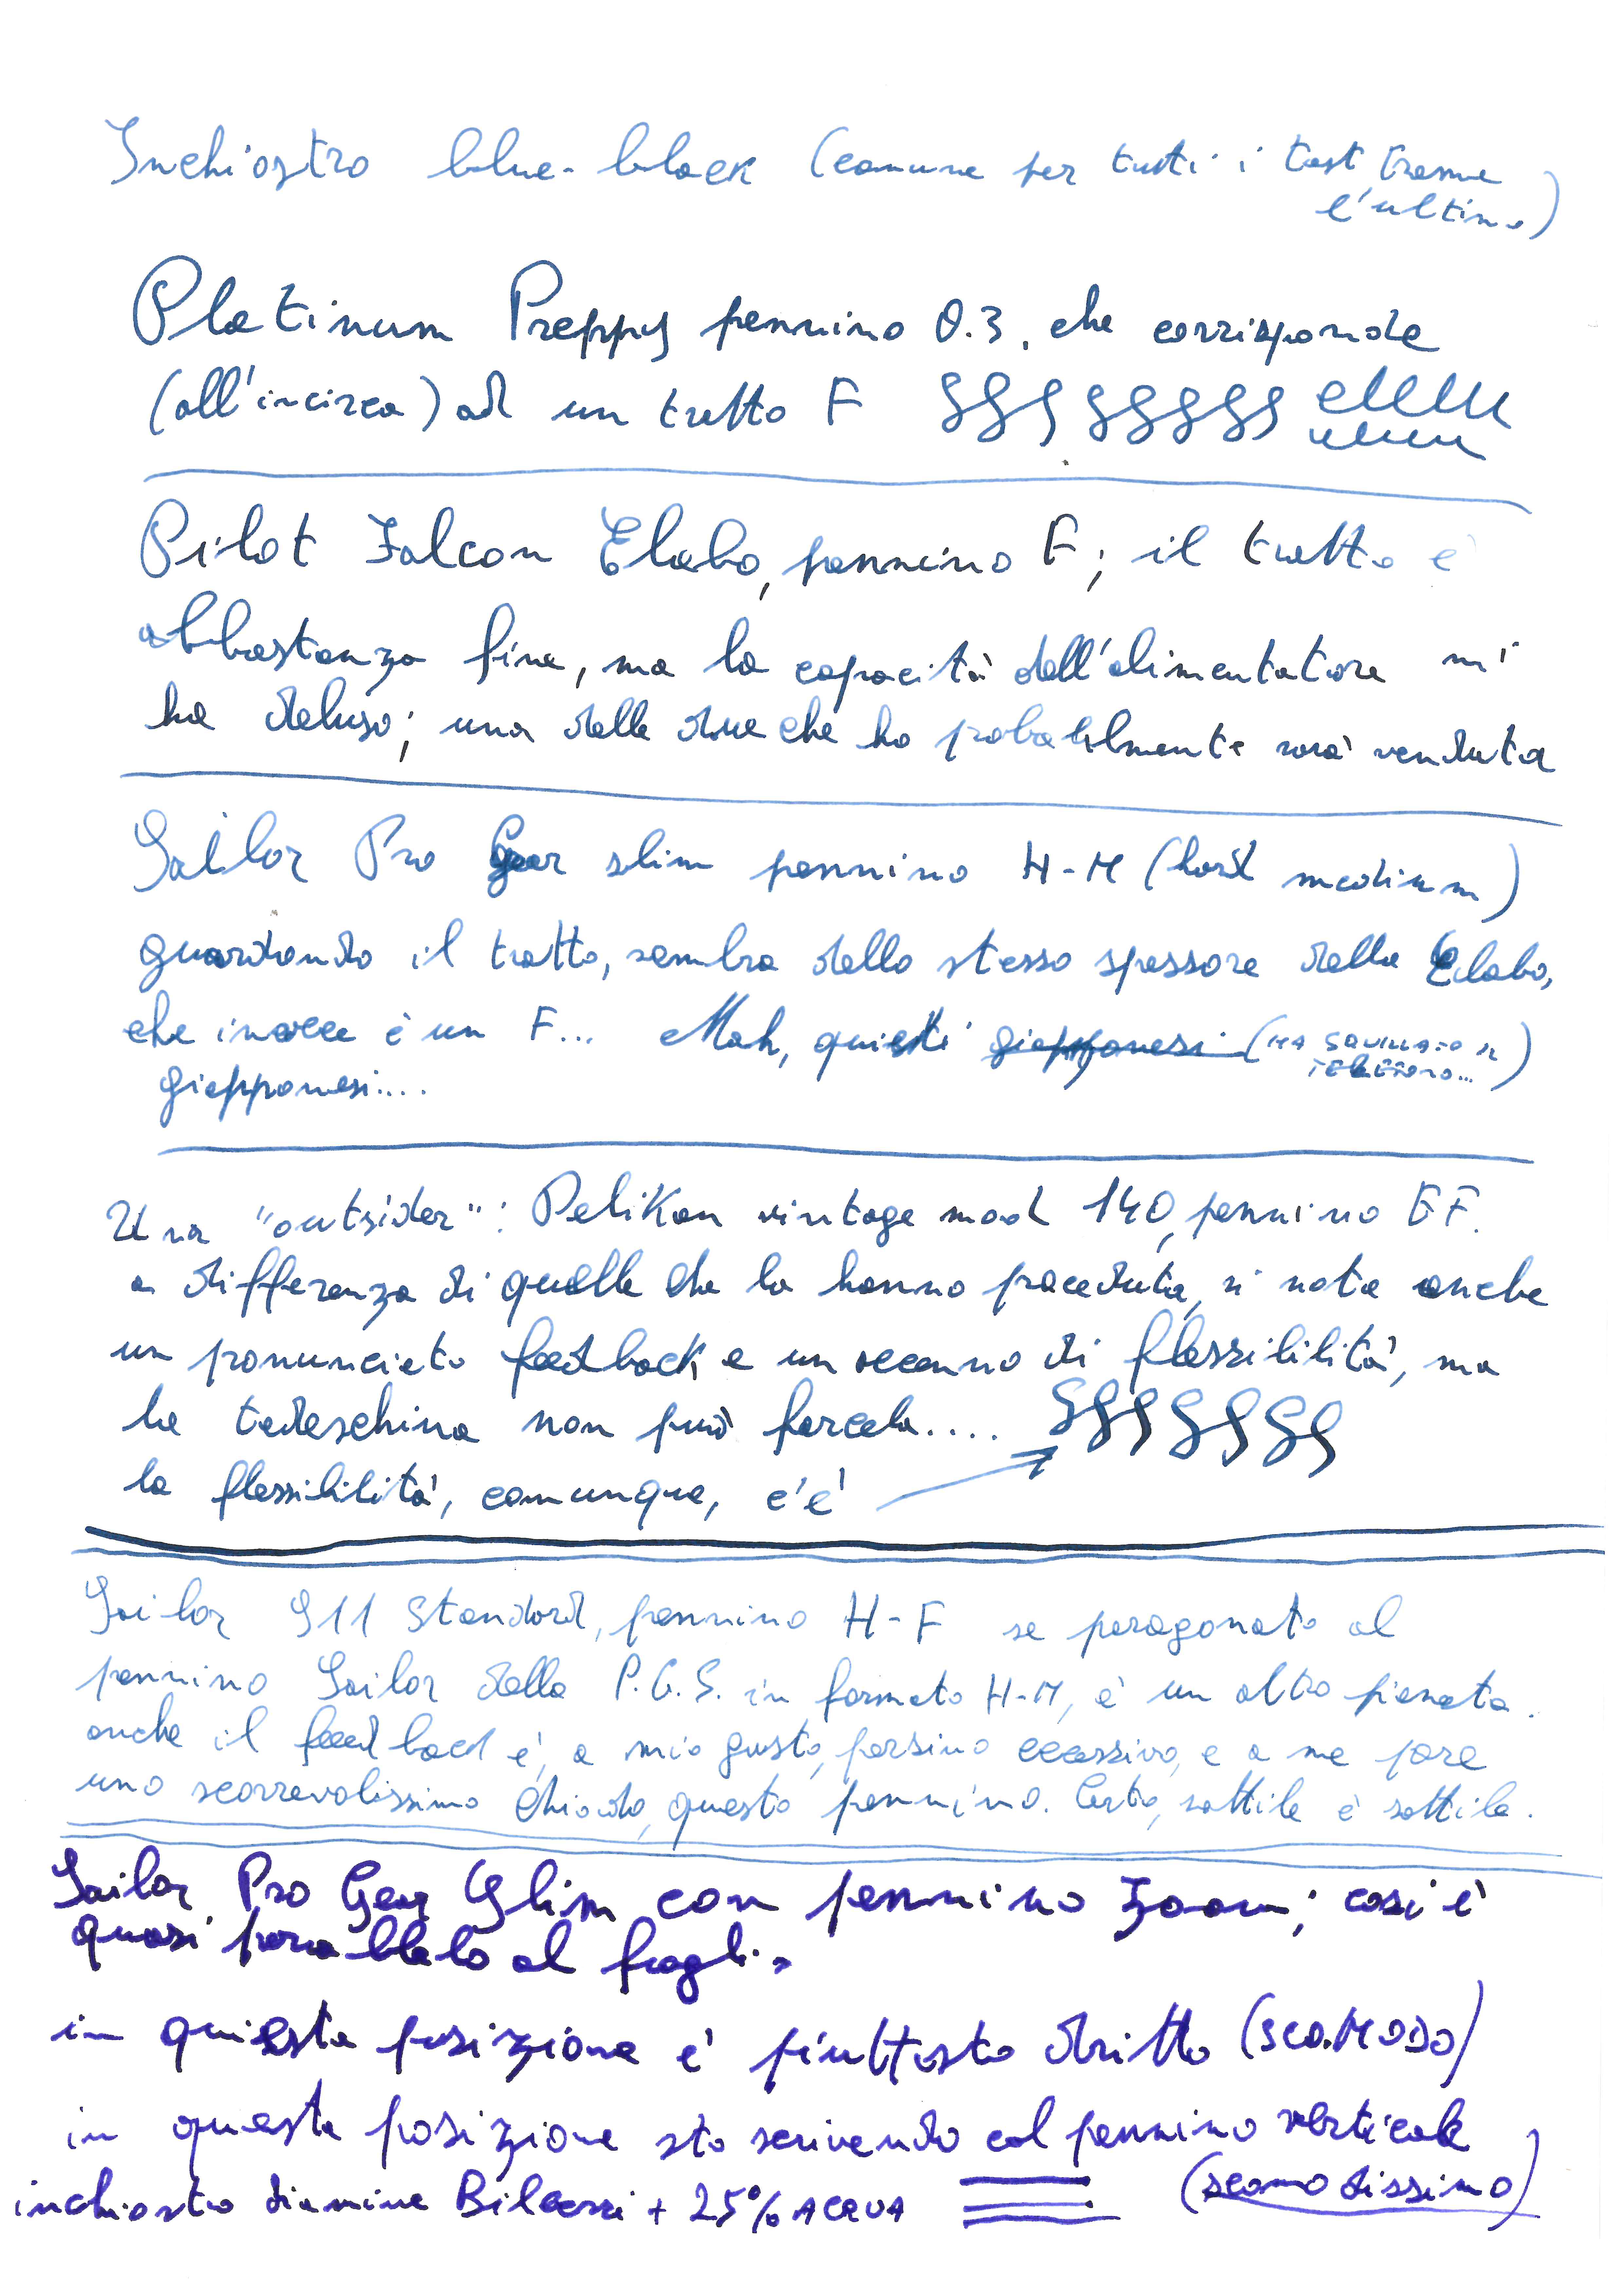 Inchiostro blue-black (comune per tutti i test tranne
l'ultimo)
Platinum Preppy pennino 0.3, che corrisponde
(all'incirca) ad un tratto F
Pilot Falcon Elabo, pennino F; il tratto è
abbastanza fine, ma la capacità dell'alimentatore mi
ha deluso; una delle due che ho probabilmente sarà venduta
Sailor Pro Gear slim pennino H-M (hard medium)
guardando il tratto, sembra dello stesso spessore della Elabo,
che invece è un F... Mah, questi giapponesi (HA SQUILLATO IL
TELEFONO...)
giapponesi....
Una "outsider": Pelikan vintage mod 140, pennino EF.
a differenza di quelle che la hanno preceduta, si nota anche
un pronunciato feedback e un accenno di flessibilità, ma
la tedeschina non può farcela....
la flessibilità, comunque, c'è
Sailor 911 Standard, pennino H-F se paragonato al
pennino Sailor della P.G.S. in formato H-M, è un altro pianeta.
anche il feedback è, a mio gusto, persino eccessivo, e a me pare
uno scorrevolissimo chiodo, questo pennino. Certo, sottile è sottile.
Sailor Pro Gear Slim con pennino Zoom; così è
quasi parallelo al foglio
in questa posizione è piuttosto dritto (SCOMODO)
in questa posizione sto scrivendo col pennino verticale
(scomodissimo)
inchiostro diamine Bilberry + 25% ACQUA